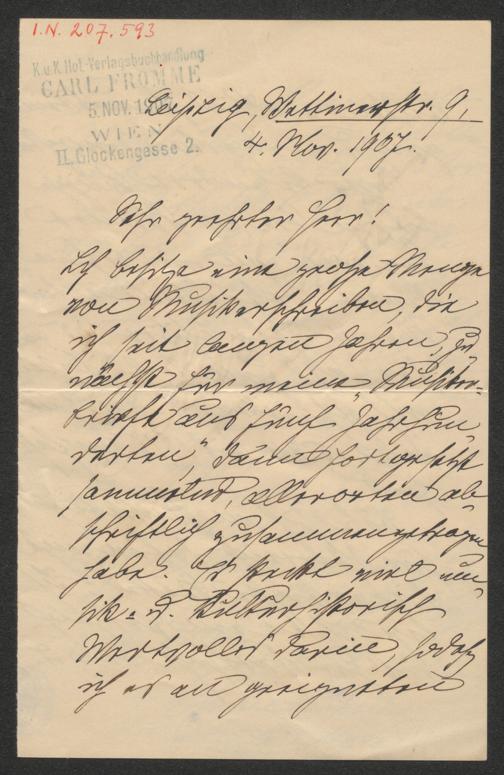 I.N. 207.593
K.u.K. Hof-Verlagsbuchhandlung
CARL FROMME
5. NOV. 1907
WIEN
II. Glockengasse 2.
Leipzig, Wettinerstr. 9,
4. Nov. 1907.
Sehr geehrter Herr!
Ich besitze eine große Menge
von Musikerschreiben, die
ich seit langen Jahren, zu
nächst für meine „Musiker-
briefe aus fünf Jahrhun
derten", dann fortgesetzt
sammelnd, allerorten ab
schriftlich zusammengetragen
habe. Es steckt viel mu
sik- u. kulturhistorisch
Wertvolles darin, sodaß
ich es an geeigneten